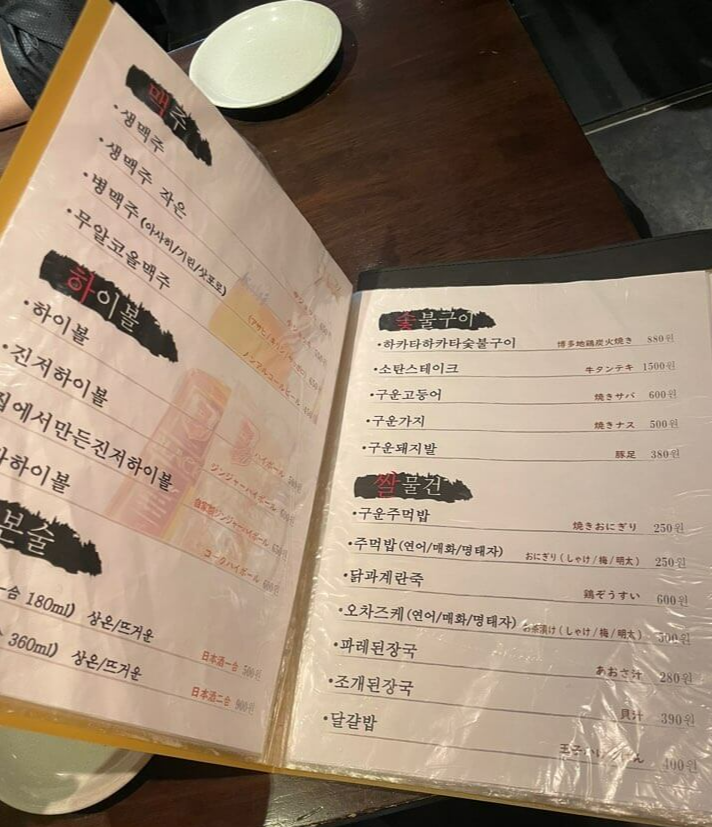 맥주
·생맥주
·생맥주 작은
·병맥주(아사히/기린/삿포로)
·무알코올맥주
ノンアルコールビール
하이볼
·하이볼 ハイボール
·진저하이볼 ジンジャーハイボール
집에서만든진저하이볼 自家製ジンジャーハイボール
하이볼 コークハイボール
본술
180ml) 상온/뜨거운 日本酒一合 500원
360ml) 상온/뜨거운 日本酒二合 900원
숯불구이
·하카타하카타숯불구이 博多地鶏炭火焼き 880원
·소탄스테이크 牛タンテキ 1500원
·구운고등어 焼きサバ 600원
·구운가지 焼きナス 500원
·구운돼지발 豚足 380원
쌀물건
·구운주먹밥 焼きおにぎり 250원
·주먹밥(연어/매화/명태자) おにぎり(しゃけ/梅/明太) 250원
·닭과계란죽 鶏ぞうすい 600원
·오차즈케(연어/매화/명태자) お茶漬け(しゃけ/梅/明太) 500원
·파레된장국 あおさ汁 280원
·조개된장국 貝汁 390원
·달걀밥 400원